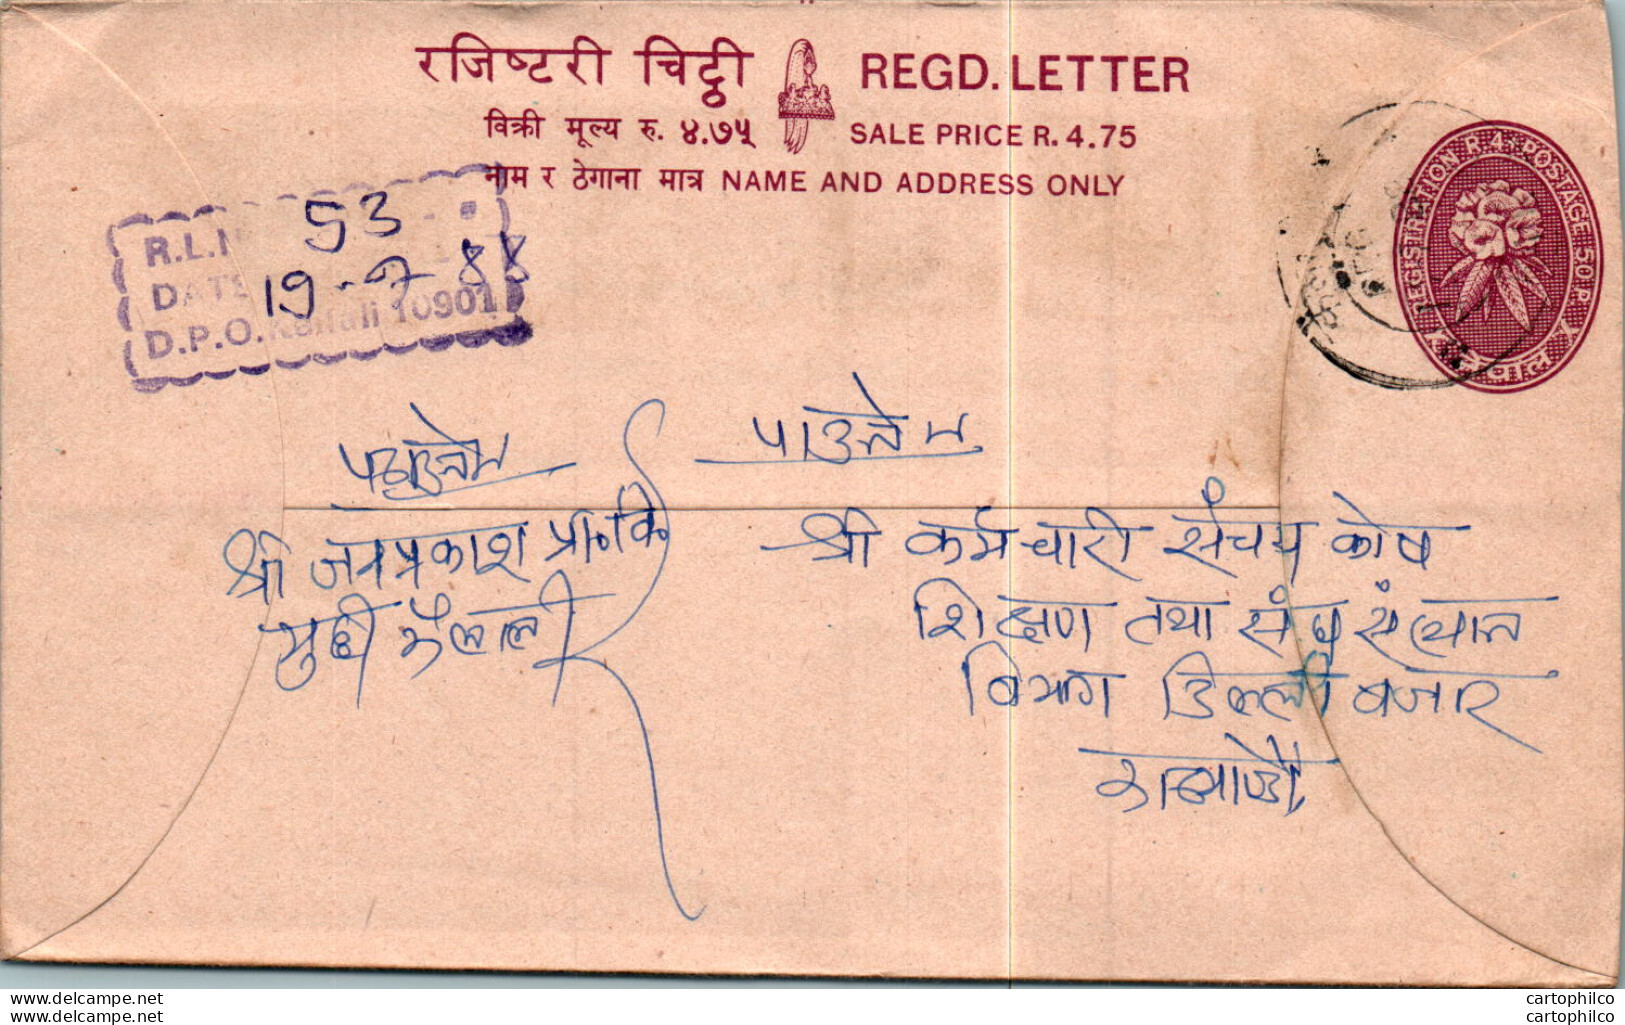 रजिष्टरी चिट्ठी REGD. LETTER
विक्री मूल्य रु. ४.७५ SALE PRICE R. 4.75
नाम र ठेगाना मात्र NAME AND ADDRESS ONLY
REGISTRATION R 4 POSTAGE 50 P
R.L.N 53
DATE 19-7-88
D.P.O. Kailali 10901
पठाउने
श्री जयप्रकाश प्रा०वि०
मुढी कैलाली
पाउने
श्री कर्मचारी संचय कोष
शिक्षण तथा संघ संस्थान
विभाग डिल्ली बजार
काठमाण्डौं
delcampe.net
delcampe.com
cartophilco
cartophilco